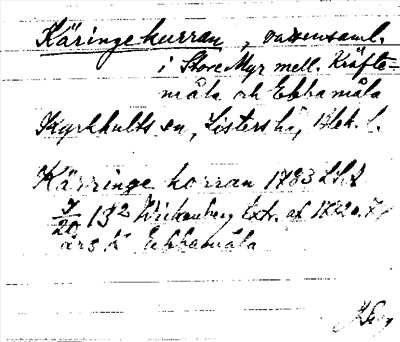 Käringehurran, vattensaml.
i Stora Myr mell. Kräfte-
måla och Ebbamåla
Kyrkhults sn, Listers hd, Blek. l.
Kärringe horran 1783 LSA
13² Wickenberg Extr. af 1822 o. 7
års K Ebbamåla